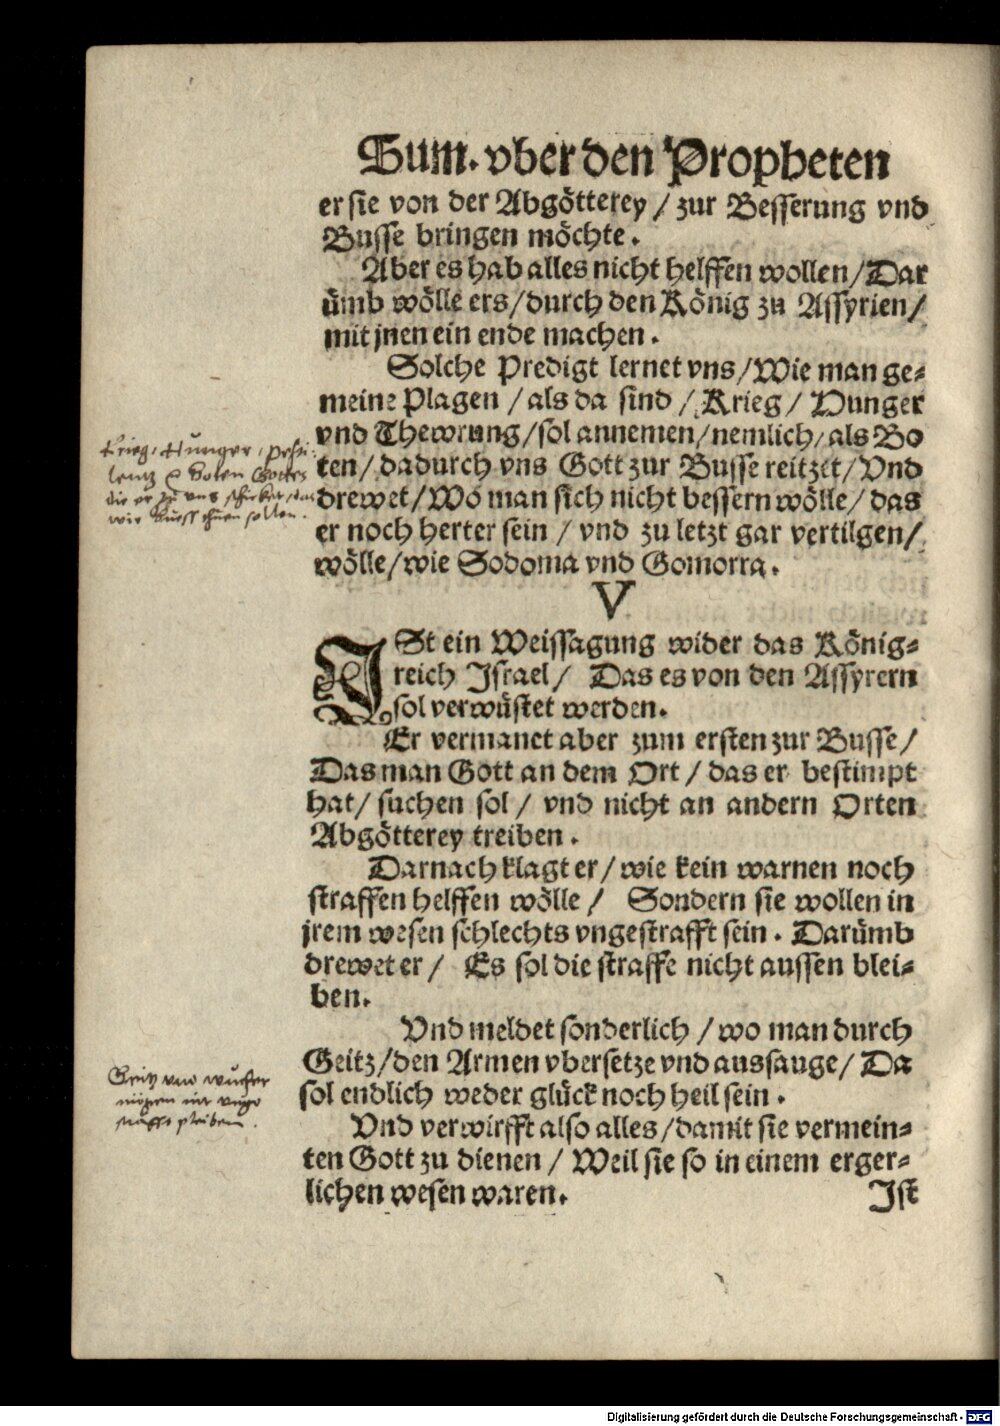 Sum. vber den Propheten
er sie von der Abgötterey / zur Besserung vnd
Busse bringen möchte.
Aber es hab alles nicht helffen wollen / Dar
ümb wölle ers / durch den König zu Assyrien /
mit jnen ein ende machen.
Solche Predigt lernet vns / Wie man ge⸗
meine Plagen / als da sind / Krieg / Hunger
vnd Thewrung / sol annemen / nemlich / als Bo
ten / dadurch vns Gott zur Busse reitzet / Vnd
drewet / Wo man sich nicht bessern wölle / das
er noch herter sein / vnd zu letzt gar vertilgen /
wölle / wie Sodoma vnd Gomorra.
Krieg, Hunger, Pesti⸗
lentz Boten Gottes
die er zu vns schicket, das
wir Buess thuen sollen.
V
ISt ein Weissagung wider das König⸗
reich Israel / Das es von den Assyrern
sol verwüstet werden.
Er vermanet aber zum ersten zur Busse /
Das man Gott an dem Ort / das er bestimpt
hat / suchen sol / vnd nicht an andern Orten
Abgötterey treiben.
Darnach klagt er / wie kein warnen noch
straffen helffen wölle / Sondern sie wollen in
jrem wesen schlechts vngestrafft sein. Darümb
drewet er / Es sol die straffe nicht aussen blei⸗
ben.
Vnd meldet sonderlich / wo man durch
Geitz / den Armen vbersetze vnd aussauge / Da
sol endlich weder glück noch heil sein.
Geitz vnd wucher
pleiben.
Vnd verwirfft also alles / damit sie vermein⸗
ten Gott zu dienen / Weil sie so in einem erger⸗
lichen wesen waren.
Ist
Digitalisierung gefördert durch die Deutsche Forschungsgemeinschaft - DFG